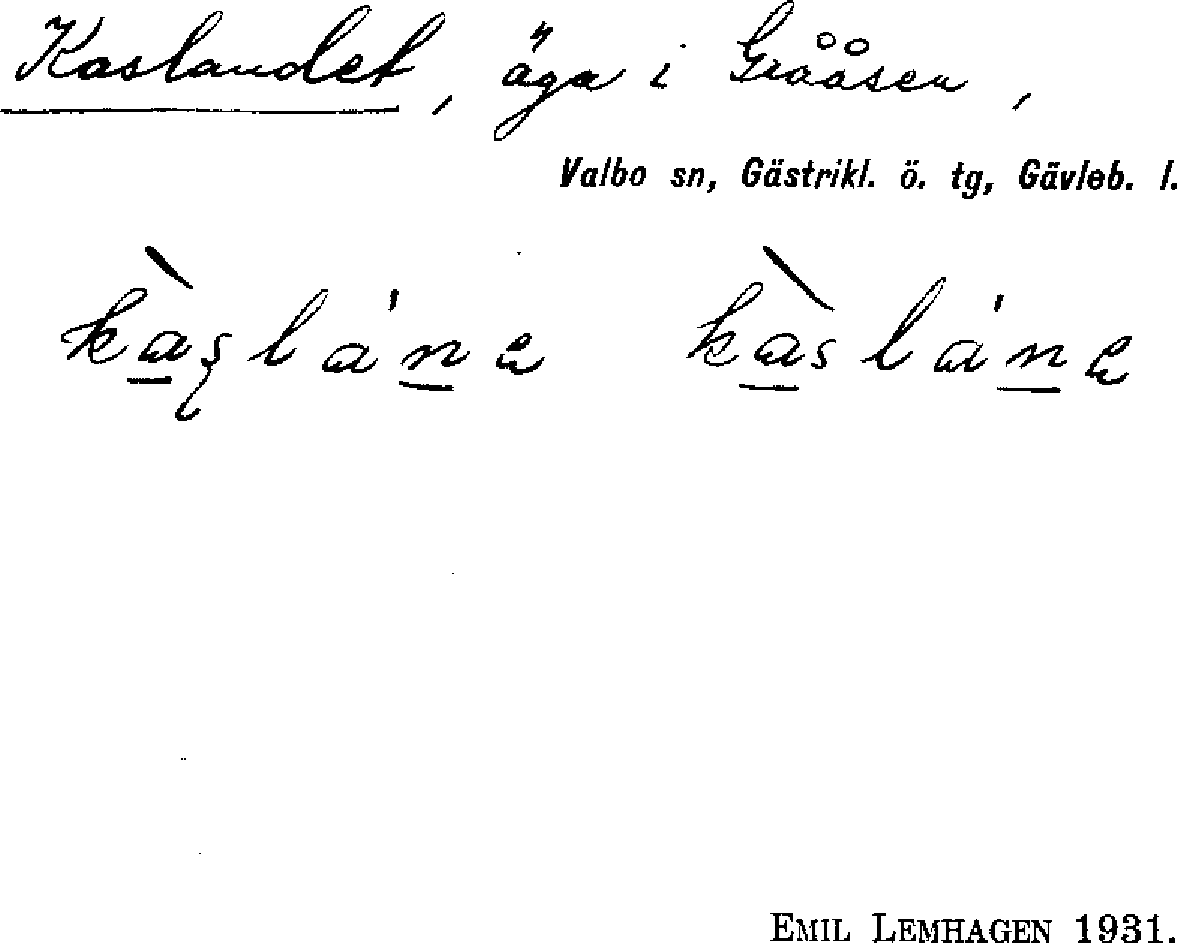 Kaslandet, äga i Grååsen,
Valbo sn, Gästrikl. ö. tg, Gävleb. l.
kàsláne kàsláne
EMIL LEMHAGEN 1931.